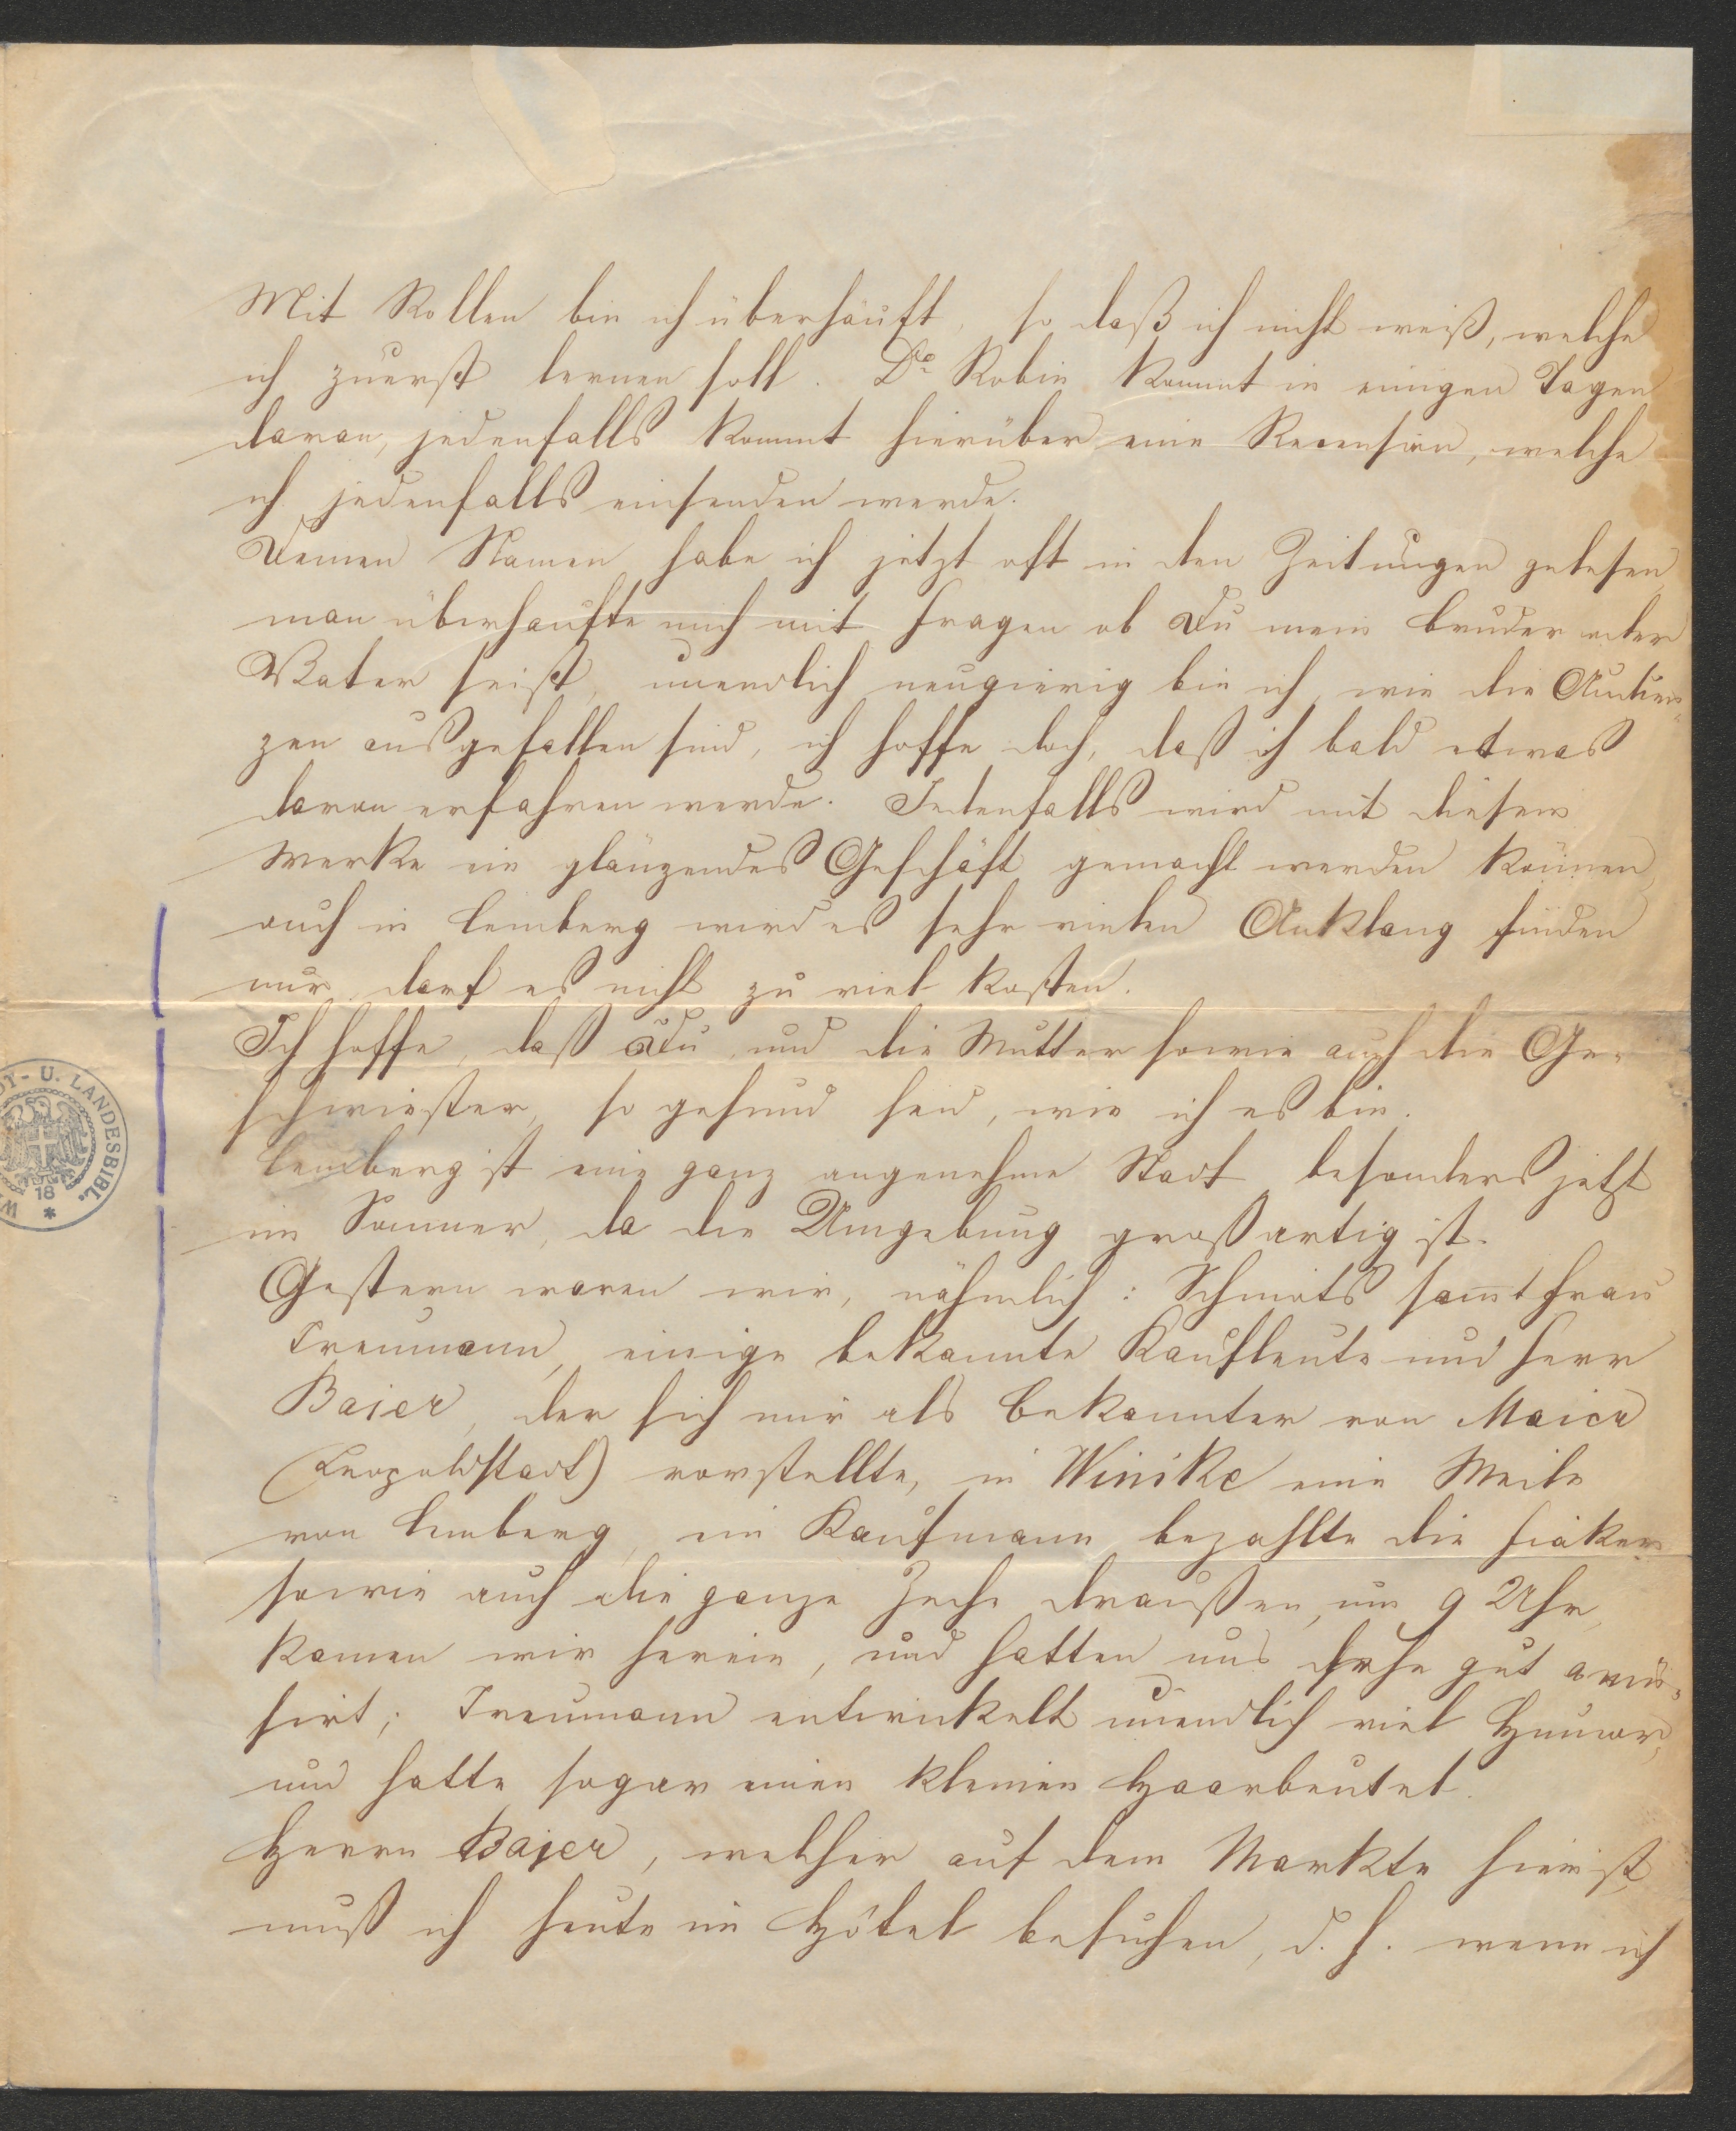 Mit Rollen bin ich überhäuft, so daß ich nicht weiß, welche
ich zuerst lernen soll. Dr Robin kommt in einigen Tagen
daran, jedenfalls kommt hierüber eine Recension, welche
ich jedenfalls einsenden werde.
Deinen Namen habe ich jetzt oft in den Zeitungen gelesen,
man überhaufte mich mit Fragen ob Du mein Bruder oder
Vater seist, unendlich neugierig bin ich, wie die Audien-
zen ausgefallen sind, ich hoffe doch, daß ich bald etwas
davon erfahren werde. Jedenfalls wird mit diesem
Werke ein glänzendes Geschäft gemacht werden können,
auch in Lemberg wird es sehr vielen Anklang finden
nur darf es nicht zu viel kosten.
Ich hoffe, daß Du und die Mutter sowie auch die Ge-
schwiester, so gesund seid, wie ich es bin.
Lemberg ist eine ganz angenehme Stadt besonders jetzt
im Sommer, da die Umgebung großartig ist.
Gestern waren wir, nähmlich: Schmidts sammt Frau
Treumann, einige bekannte Kaufleute und Herr
Baier, der sich mir als Bekannter von Maier
(Leopoldstadt) vorstellte, in Winike eine Meile
von Lemberg, ein Kaufmann bezahlte die Fiaker
sowie auch die ganze Zeche draußen, um 9 Uhr
kamen wir herein, und hatten uns sehr gut amü-
sirt; Treumann entwickelt unendlich viel Humor,
und hatte sogar einen kleinen Haarbeutel.
Herrn Bajer, welcher auf dem Markte hier ist,
muß ich heute im Hôtel besuchen, d. h. wenn ich
DT- U. LANDESBIBL.
18
W